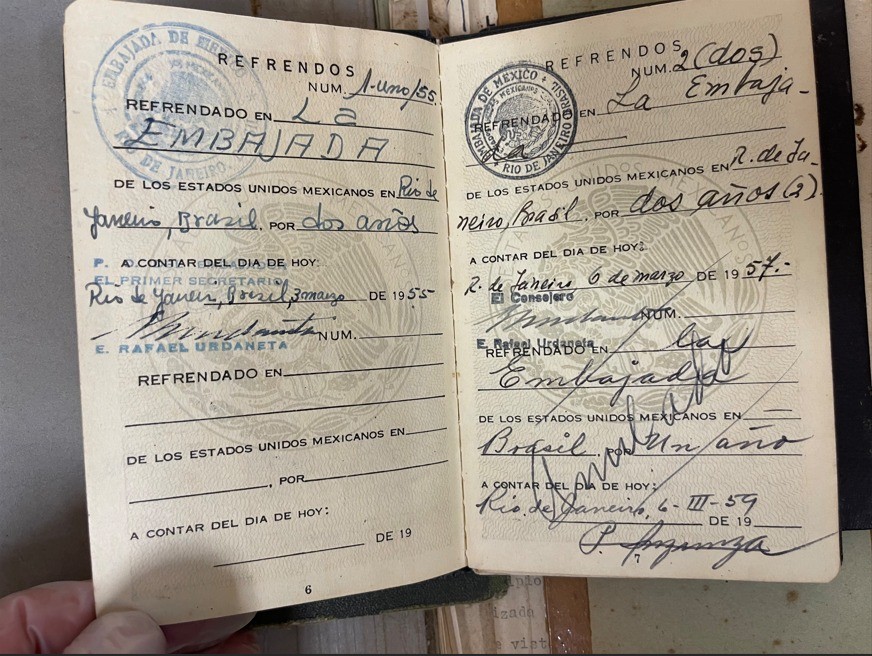 EMBAJADA DE MEXICO
RIO DE JANEIRO.
REFRENDOS
NUM. 1-uno/55.
REFRENDADO EN La
EMBAJADA
DE LOS ESTADOS UNIDOS MEXICANOS EN Rio de
Janeiro, Brasil, POR dos años
A CONTAR DEL DIA DE HOY:
P.
EL PRIMER SECRETARIO
Rio de Janeiro, Brasil, 3 marzo DE 1955
NUM.
E. RAFAEL URDANETA
REFRENDADO EN
DE LOS ESTADOS UNIDOS MEXICANOS EN
, POR
A CONTAR DEL DIA DE HOY:
DE 19
6
REFRENDOS
NUM. 2 (dos)
EMBAJADA DE MEXICO
BRASIL
RIO DE JANEIRO
REFRENDADO EN La Embaja-
da
DE LOS ESTADOS UNIDOS MEXICANOS EN R. de Ja-
neiro, Brasil, POR dos años (2).
A CONTAR DEL DIA DE HOY:
R. de Janeiro, 6 de marzo DE 1957.-
El Consejero
NUM.
E. Rafael Urdaneta
REFRENDADO EN La
Embajada
DE LOS ESTADOS UNIDOS MEXICANOS EN
Brasil, POR Un año
A CONTAR DEL DIA DE HOY:
Rio de Janeiro, 6-III-59
DE 19
7